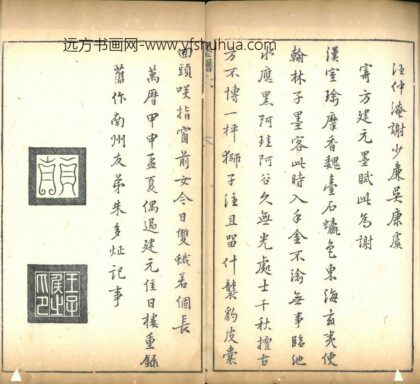 远方书画网 - www.yfshuhua.com
汪仲淹謝少廉吳康虞
寄方建元墨賦此為謝
漢室瑜麋香魏臺石蠟色東海玄光使
翰林子墨客此時入手金不渝無事臨池
水應黑阿珪阿谷久無光處士千秋擅古
万不博一枰獅子注且留什襲豹皮囊
回頭咲指窗前女今日雙蛾若個長
萬曆甲申孟夏偶過建元佳日樓重錄
舊作南州友弟朱多炡記事